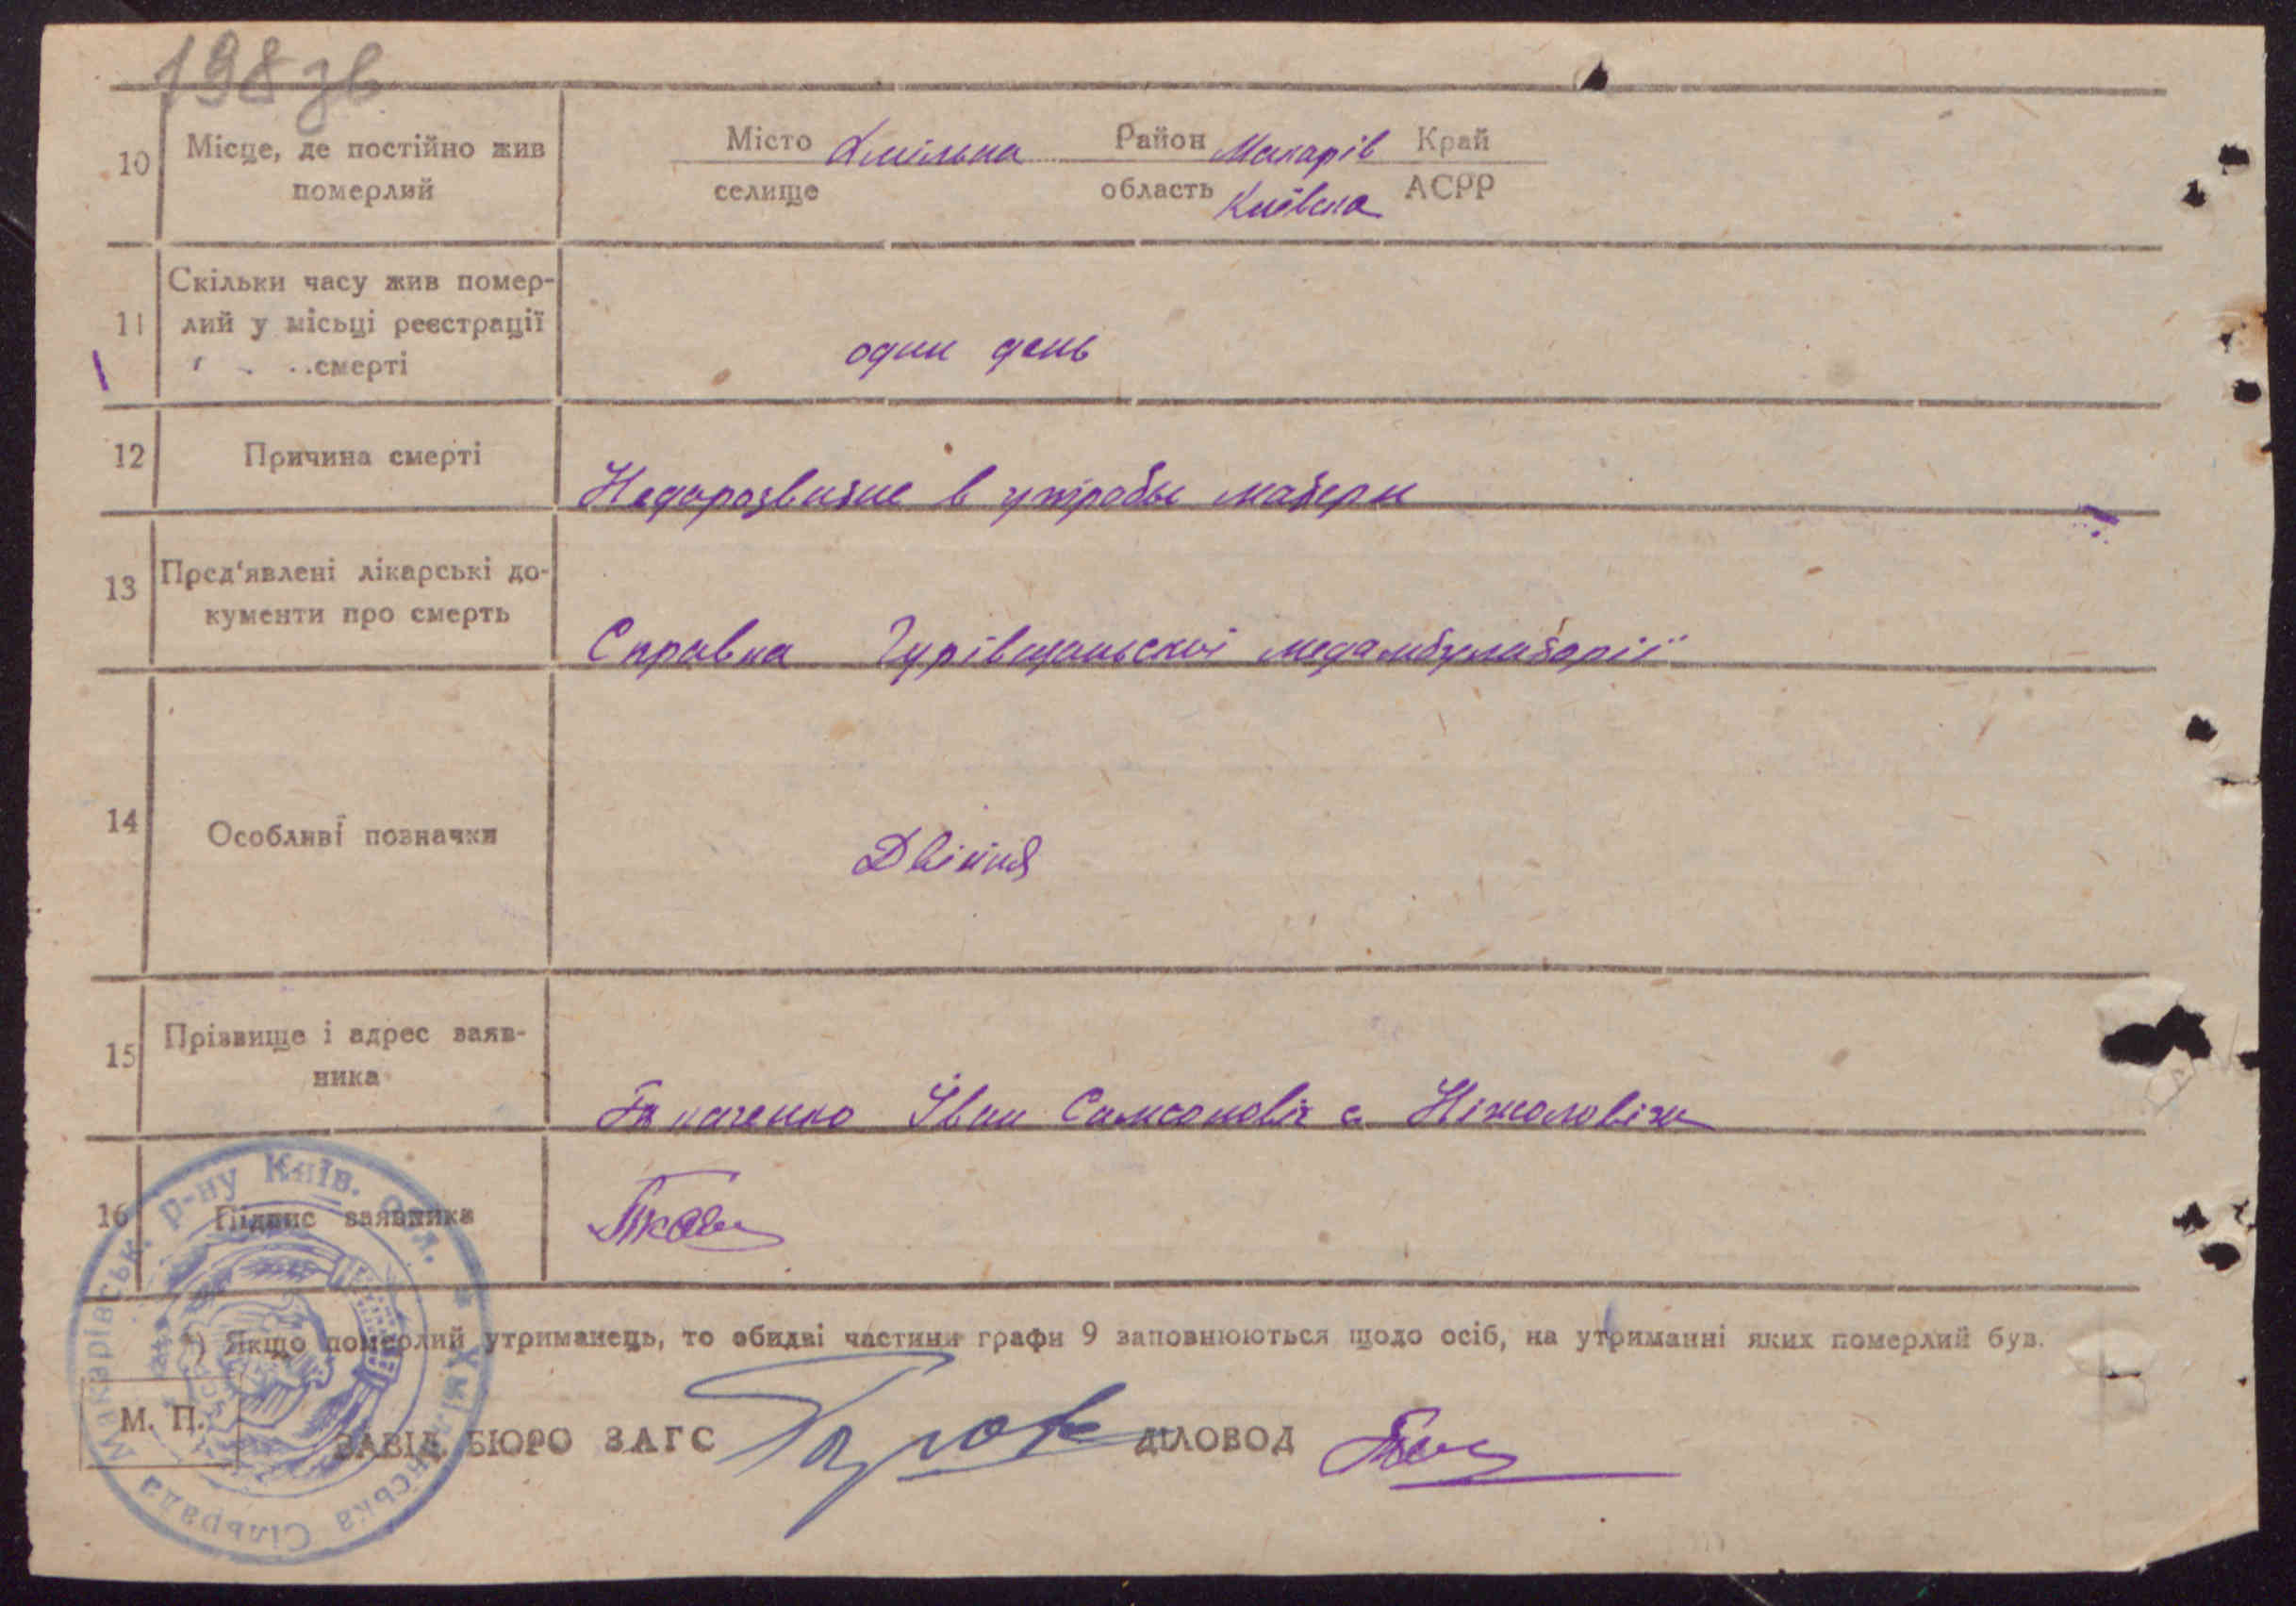 198 зв
10 Місце, де постійно жив померлий
Місто Хмільна Район Макарів Край
селище область Київська АСРР
11 Скільки часу жив помер-
лий у місьці реєстрації
смерті
один день
12 Причина смерті
Недорозвитие в утробы матери
13 Пред'явлені лікарські до-
кументи про смерть
Справка Гурівщанської медамбулаторії
14 Особливі позначки
Двійня
15 Прізвище і адрес заяв-
ника
Ткаченко Іван Самсоновіч с. Ніжоловічи
16 Підпис заявника
*) Якщо померлий утриманець, то обидві частини графи 9 заповнюються щодо осіб, на утриманні яких померлий був.
М. П.
ЗАВІД. БЮРО ЗАГС
ДІЛОВОД
Макарівськ. р-ну Київ. обл. * Хмільнська Сільрада